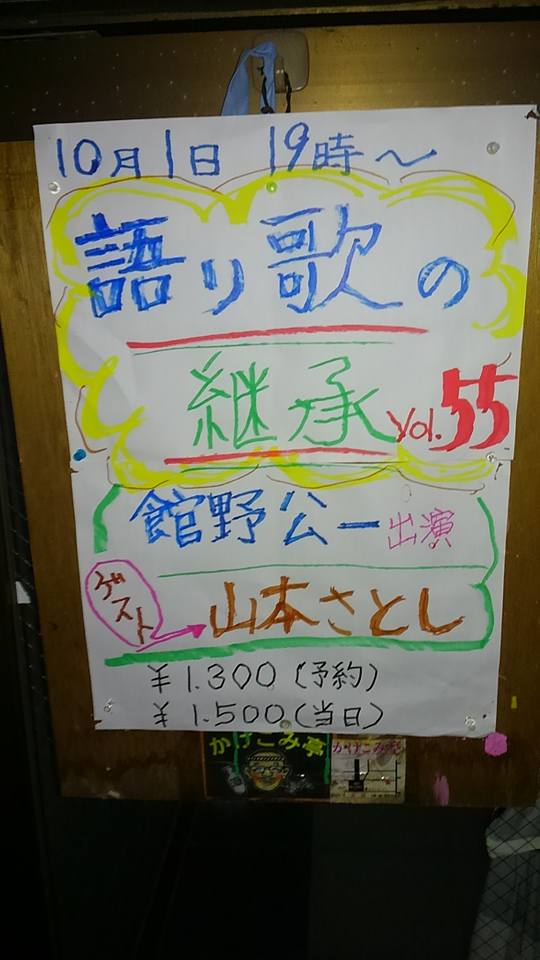 10月1日 19時～
語り歌の
継承 Vol.55
館野公一 出演
ゲスト 山本さとし
¥1.300(予約)
¥1.500(当日)
かけこみ亭 かけこみ亭